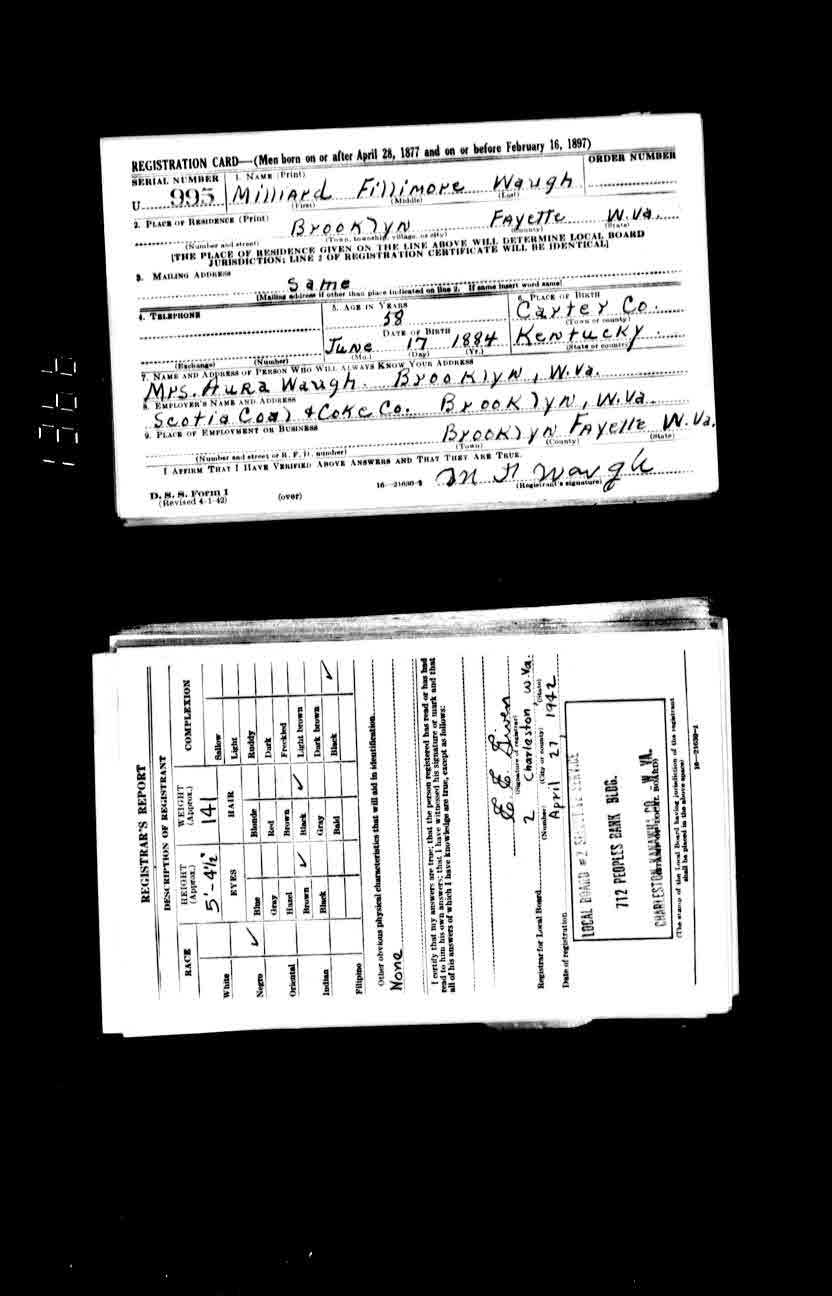 1366
REGISTRATION CARD—(Men born on or after April 28, 1877 and on or before February 16, 1897)
SERIAL NUMBER 1. NAME (Print) ORDER NUMBER
U 995 Millard Fillimore Waugh
(First) (Middle) (Last)
2. PLACE OF RESIDENCE (Print)
Brooklyn Fayette W.Va.
(Number and street) (Town, township, village, or city) (County) (State)
[THE PLACE OF RESIDENCE GIVEN ON THE LINE ABOVE WILL DETERMINE LOCAL BOARD
JURISDICTION; LINE 2 OF REGISTRATION CERTIFICATE WILL BE IDENTICAL]
3. MAILING ADDRESS
Same
[Mailing address if other than place indicated on line 2. If same insert word same]
4. TELEPHONE 5. AGE IN YEARS 6. PLACE OF BIRTH
58 Carter Co.
(Town or county)
DATE OF BIRTH
June 17 1884 Kentucky
(Exchange) (Number) (Mo.) (Day) (Yr.) (State or country)
7. NAME AND ADDRESS OF PERSON WHO WILL ALWAYS KNOW YOUR ADDRESS
Mrs. Aura Waugh. Brooklyn, W.Va.
8. EMPLOYER'S NAME AND ADDRESS
Scotia Coal & Coke Co. Brooklyn, W.Va.
9. PLACE OF EMPLOYMENT OR BUSINESS
Brooklyn Fayette W.Va.
(Number and street or R. F. D. number) (Town) (County) (State)
I AFFIRM THAT I HAVE VERIFIED ABOVE ANSWERS AND THAT THEY ARE TRUE.
M F Waugh
D. S. S. Form 1 16—21630-2 (Registrant's signature)
(Revised 4-1-42) (over)
REGISTRAR'S REPORT
DESCRIPTION OF REGISTRANT
RACE HEIGHT (Approx.) WEIGHT (Approx.) COMPLEXION
5'-4½" 141
White EYES HAIR Sallow
Light
Negro ✓ Blue Blonde Ruddy
Gray Red Dark
Oriental Hazel Brown Freckled
Brown ✓ Black ✓ Light brown
Indian Black Gray Dark brown
Bald Black ✓
Filipino
Other obvious physical characteristics that will aid in identification
None
I certify that my answers are true; that the person registered has read or has had
read to him his own answers; that I have witnessed his signature or mark and that
all of his answers of which I have knowledge are true, except as follows:
(Signature of registrar)
Registrar for Local Board 2 Charleston W.Va.
(Number) (City or county) (State)
Date of registration April 27, 1942
LOCAL BOARD #2 SELECTIVE SERVICE
712 PEOPLES BANK BLDG.
CHARLESTON KANAWHA CO. W VA.
(STAMP OF LOCAL BOARD)
(The stamp of the Local Board having jurisdiction of the registrant
shall be placed in the above space)
16—21630-1